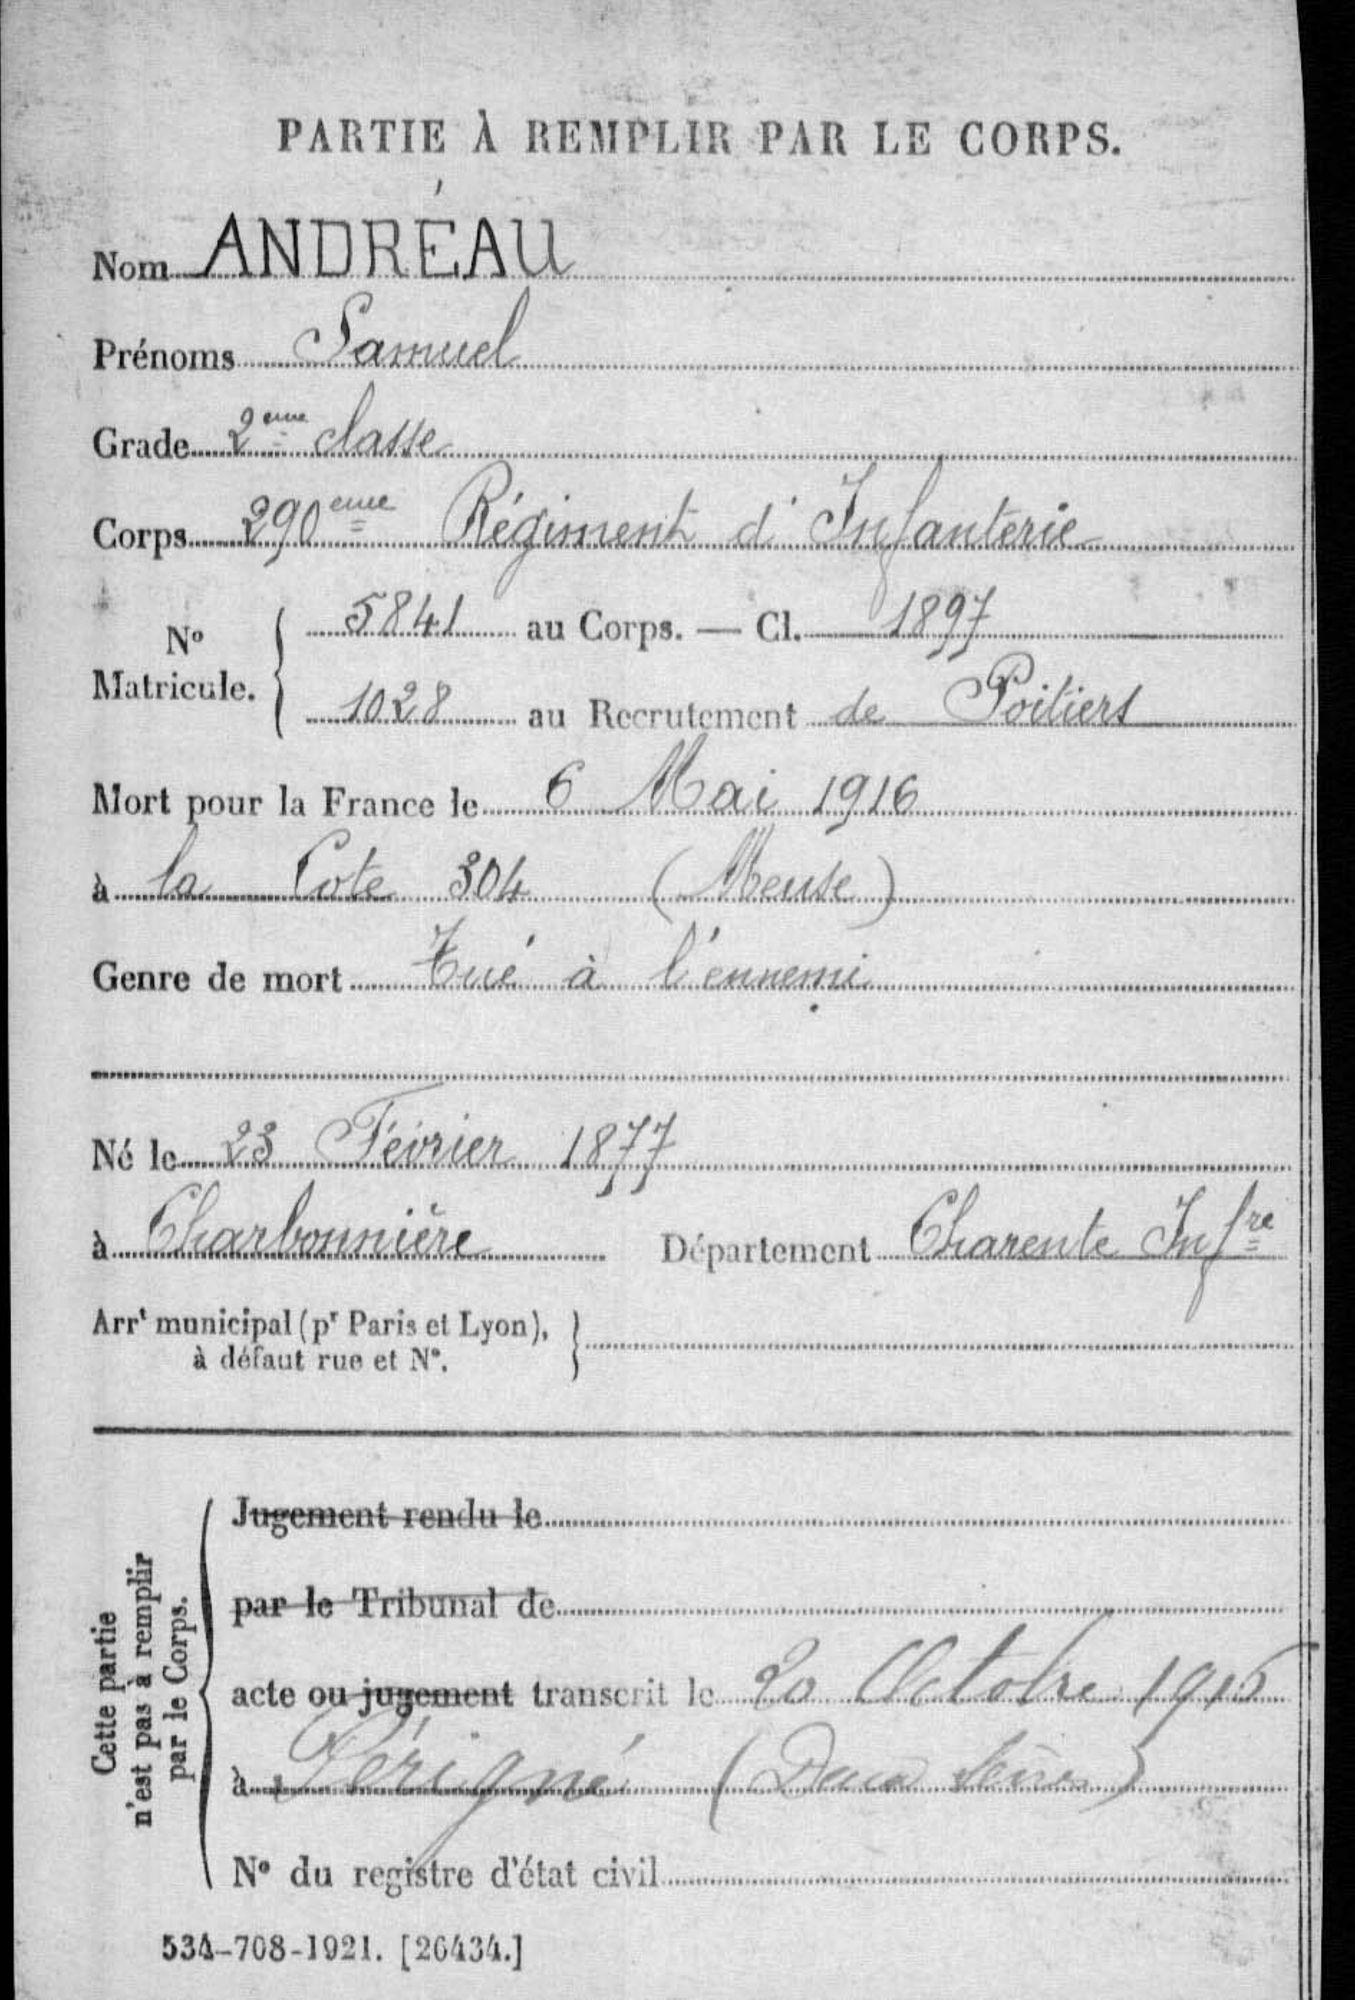 PARTIE À REMPLIR PAR LE CORPS.
Nom ANDRÉAU
Prénoms Samuel
Grade 2ème classe
Corps 290ème Régiment d'Infanterie
N° Matricule. { 5841 au Corps. — Cl. 1897
1028 au Recrutement de Poitiers
Mort pour la France le 6 Mai 1916
à la Cote 304 (Meuse)
Genre de mort Tué à l'ennemi
Né le 23 Février 1877
à Charbonnière Département Charente Infre
Arrt municipal (pr Paris et Lyon), }
à défaut rue et N°.
Cette partie
n'est pas à remplir
par le Corps.
Jugement rendu le
par le Tribunal de
acte ou jugement transcrit le 20 Octobre 1916
à Périgné (Deux Sèvres)
N° du registre d'état civil
534-708-1921. [26434.]